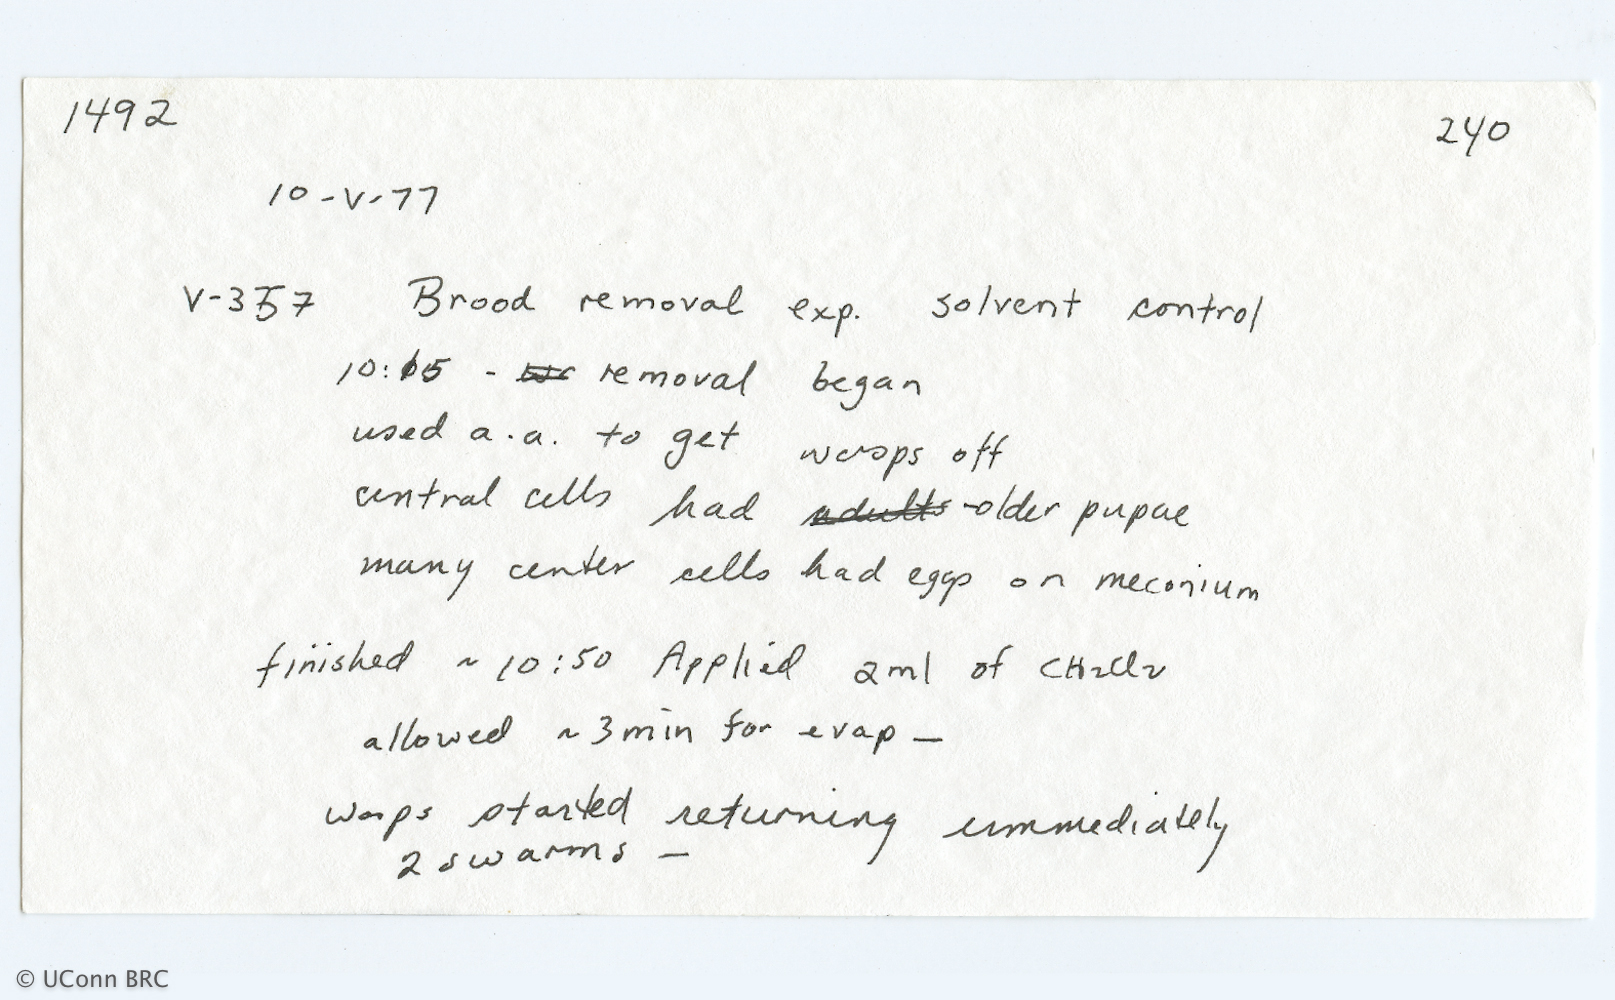 1492
240
10-V-77
V-357 Brood removal exp. solvent control
10:15 - removal began
used a.a. to get wasps off
central cells had older pupae
many center cells had eggs on meconium
finished ~ 10:50 Applied 2ml of CH2Cl2
allowed ~ 3 min for evap —
wasps started returning immediately
2 swarms —
© UConn BRC